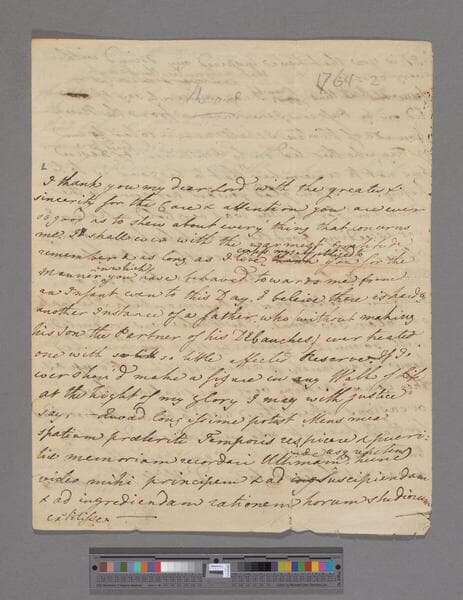 1761-2
I thank you my dear Lord with the greatest
sincerity for the Care & attention you are ever
so good as to shew about every thing that concerns
me. I shall ever with the warmest gratitude
remember & as long as I live confess myself obliged to thank you for the
Manner in which you have behaved towards me from
an Infant even to this Day. I beleive there is hardly
another Instance of a father who without making
his Son the Partner of his Debauches ever treated
one with so little affected Reserve. If I
ever shou'd make a figure in any Walk of life
at the hight of my Glory I may with justice
say: - Quoad longissime potest Mens mea
spatium præteriti Temporis respicere & pueri:
tiæ memoriam recordari Ultimam, inde usque repetens hunc
video mihi principem & ad suscipiendam
& ad ingrediendam rationem horum studiorum
extitisse